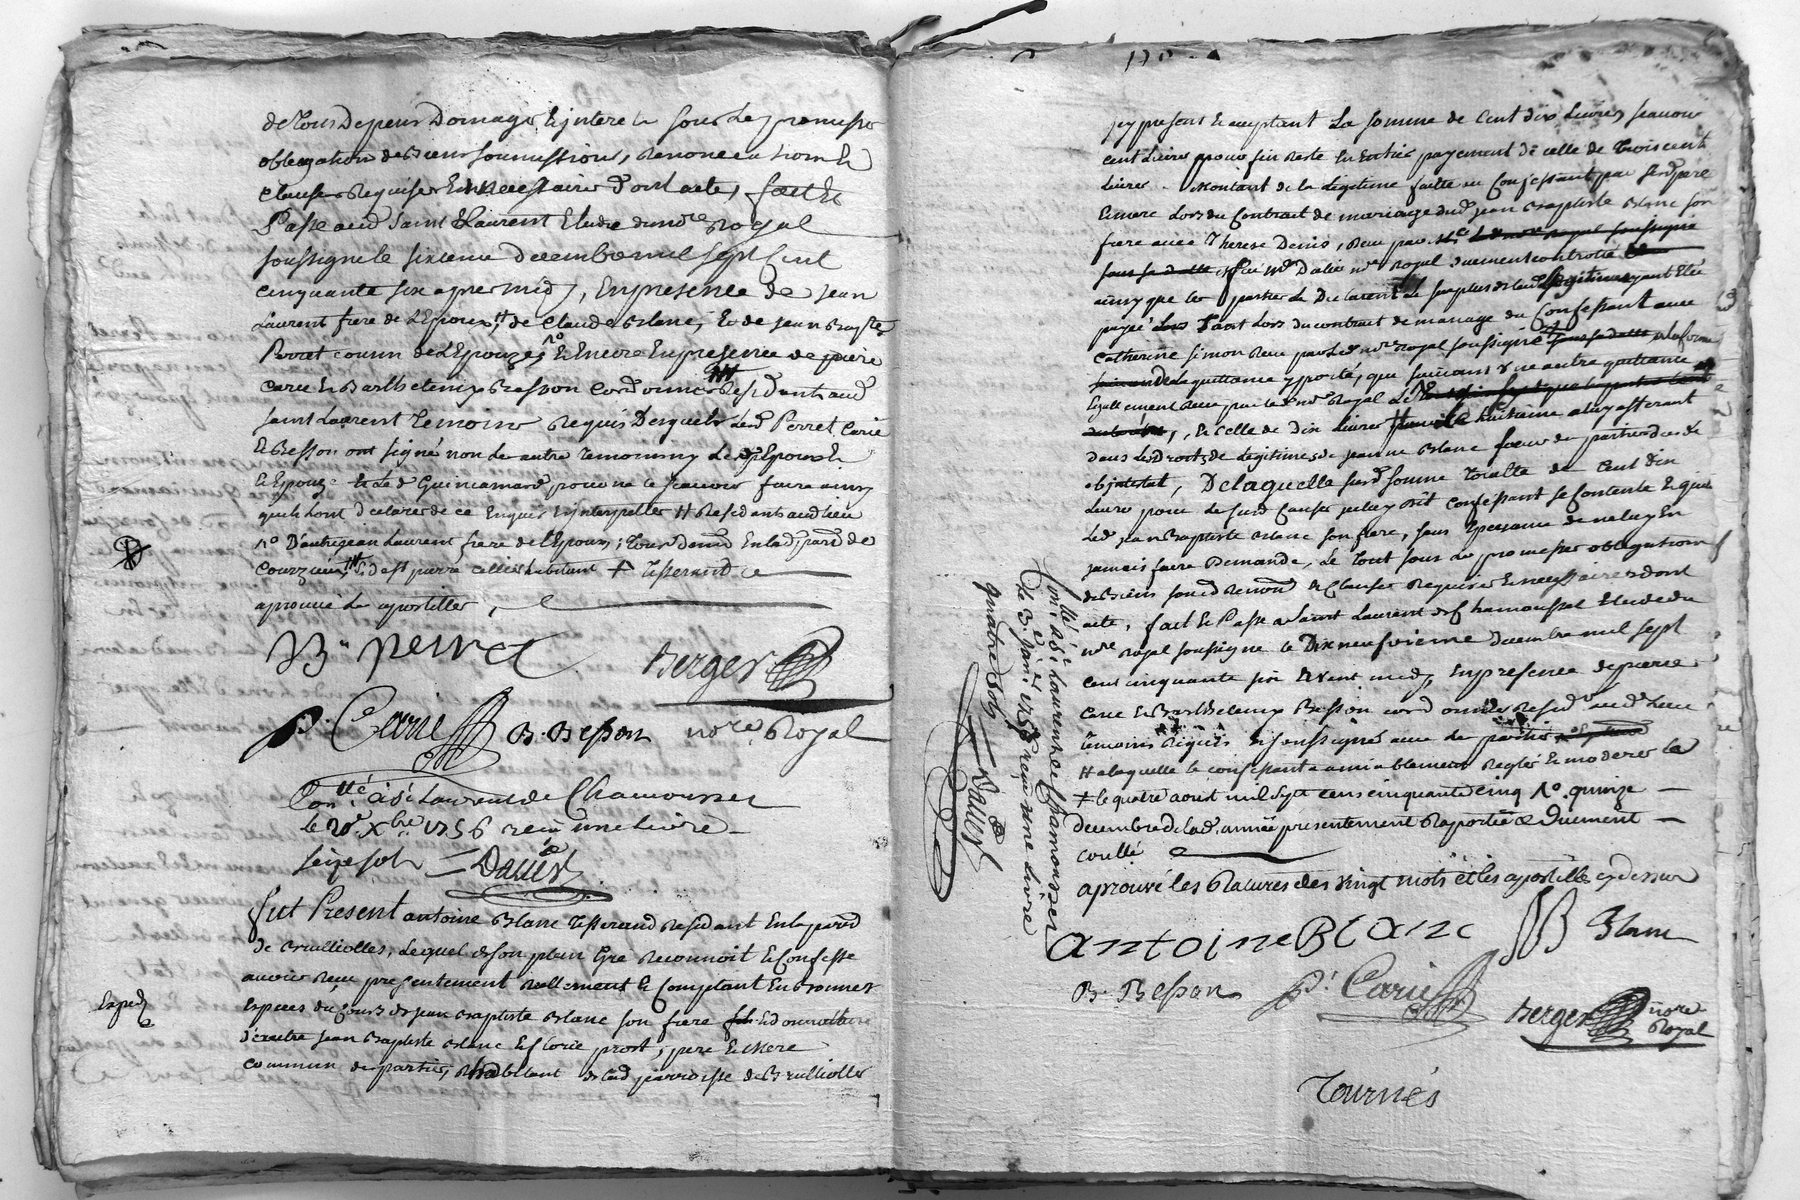 de tous depens Domages Et jnterets sous Les promesses
obligation de Biens soumissions, Renonciations Et
Clauses Requises Et necessaires Dont acte, fait Et
Passé aud Saint Laurent Etude du nore Royal
soussigné le sixieme decembre mil sept Cent
cinquante six apres midy, En presence de jean
Laurent frere de L'Epoux, H de Claude Blanc, Et de jean Baptste
Perret cousin de L'Epouze, no Et Encore En presence de pierre
Carié Et Barthelemy Besson Cordonnier Residents aud
saint Laurent Temoins Requis Desquels Led Perret Carié
Et Besson ont signé non Les autres Temoins ny Led Epoux Et
L'Epouze Et Led Guinamard pour ne le scavoir faire ainsy
quils l'ont declaré de ce Enquis Et jnterpellés H Residents aud lieu
no D'autre jean Laurent frere de L'Epoux, tous Demt En lad paroisse de
Courzieu, de st pierre habitant + Tisserand
aprouvé Les apostilles,
B. perret
Berger
P. Carié
B. Besson
nore Royal
Con.tllé à St Laurent de Chamousset
le 20e Xbre 1756 reçu une Livre
seize sols Dalles
Fut Present antoine Blanc Tisserand Residant En la paroisse
de Brulliolles, Lequel de son plein Gré Reconnoit Et Confesse
auoir Reçu presentement Reellement Et Comptant En Bonnes
Expd
Especes du Cours de jean Baptiste Blanc son frere Et donnataire
d'Autre jean Baptiste Blanc Et Clorie prost, pere Et Mere
Commun des parties, habitant de lad parroisse de Brulliolles
jcy present Et acceptant La somme de Cent dix Livres scauoir
cent Livres pour fin Reste En Entier payement de celle de Trois cent
Livres Montant de la Legitime faitte au Confessant par sesd pere
Et mere Lors du Contrat de mariage dud jean Baptiste Blanc son
frere auec Therese Denis, Reçu par Me
nre Royal duement controllé
ainsy que les parties Le Declarent Le surplus de lad Legitime ayant Eté
payé Lors du contrat de mariage du Confessant auec
Catherine simon Reçu par Led nre Royal soussigné
de La quittance y portée, que suiuant Une autre quittance
Egallement Reçu par led nre Royal
Et celle de Dix Livres a luy afferant
dans Les Droits de Legitimes de jeanne Blanc soeur des parties decedée
abjntestat, De laquelle susd somme Totalle de Cent dix
Livres pour Les susd Causes Led Confessant se Contente Et quitte
Led jean Baptiste Blanc son frere, sans Esperance de ne luy En
jamais faire Demande, Le Tout sous Les promesses obligations
de Biens soumd Renond Et Clauses Requises Et necessaires dont
acte, fait Et Passé a Saint Laurent de Chamousset Etude du
nre Royal soussigné le Dix neufvieme decembre mil sept
Cent cinquante six Avant midy, En presence de pierre
Carié Et Barthelemy Besson cordonniers Residt aud Lieu
témoins Requis Et soussignés auec les parties
H a laquelle le confessant a amiablement Reglé Et moderé la
+ le quatre aoust mil sept cens cinquante cinq no quinze
decembre de lad année presentement Raportée & Duement
conllé
aprouvé les Ratures des vingt mots et les apostilles cy dessus
antoine BLanc
JB Blanc
B. Besson
P. Carié
Berger nore Royal
Tournés
Con.llé à St Laurent de Chamousset
le 3e janer 1757 reçu une Livre
quatre sols Dalles